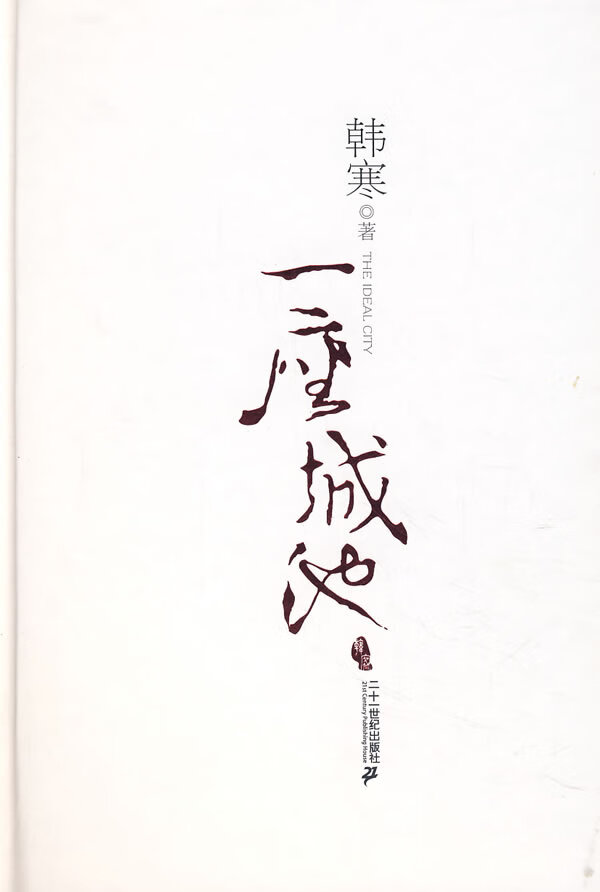 韩寒◎著
THE IDEAL CITY
一座城池
韩寒
二十一世纪出版社
21st Century Publishing House
21